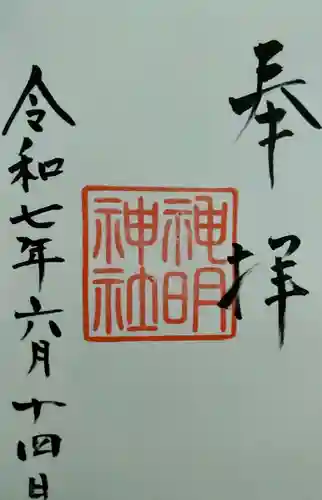 奉拝
神明
神社
令和七年六月十四日